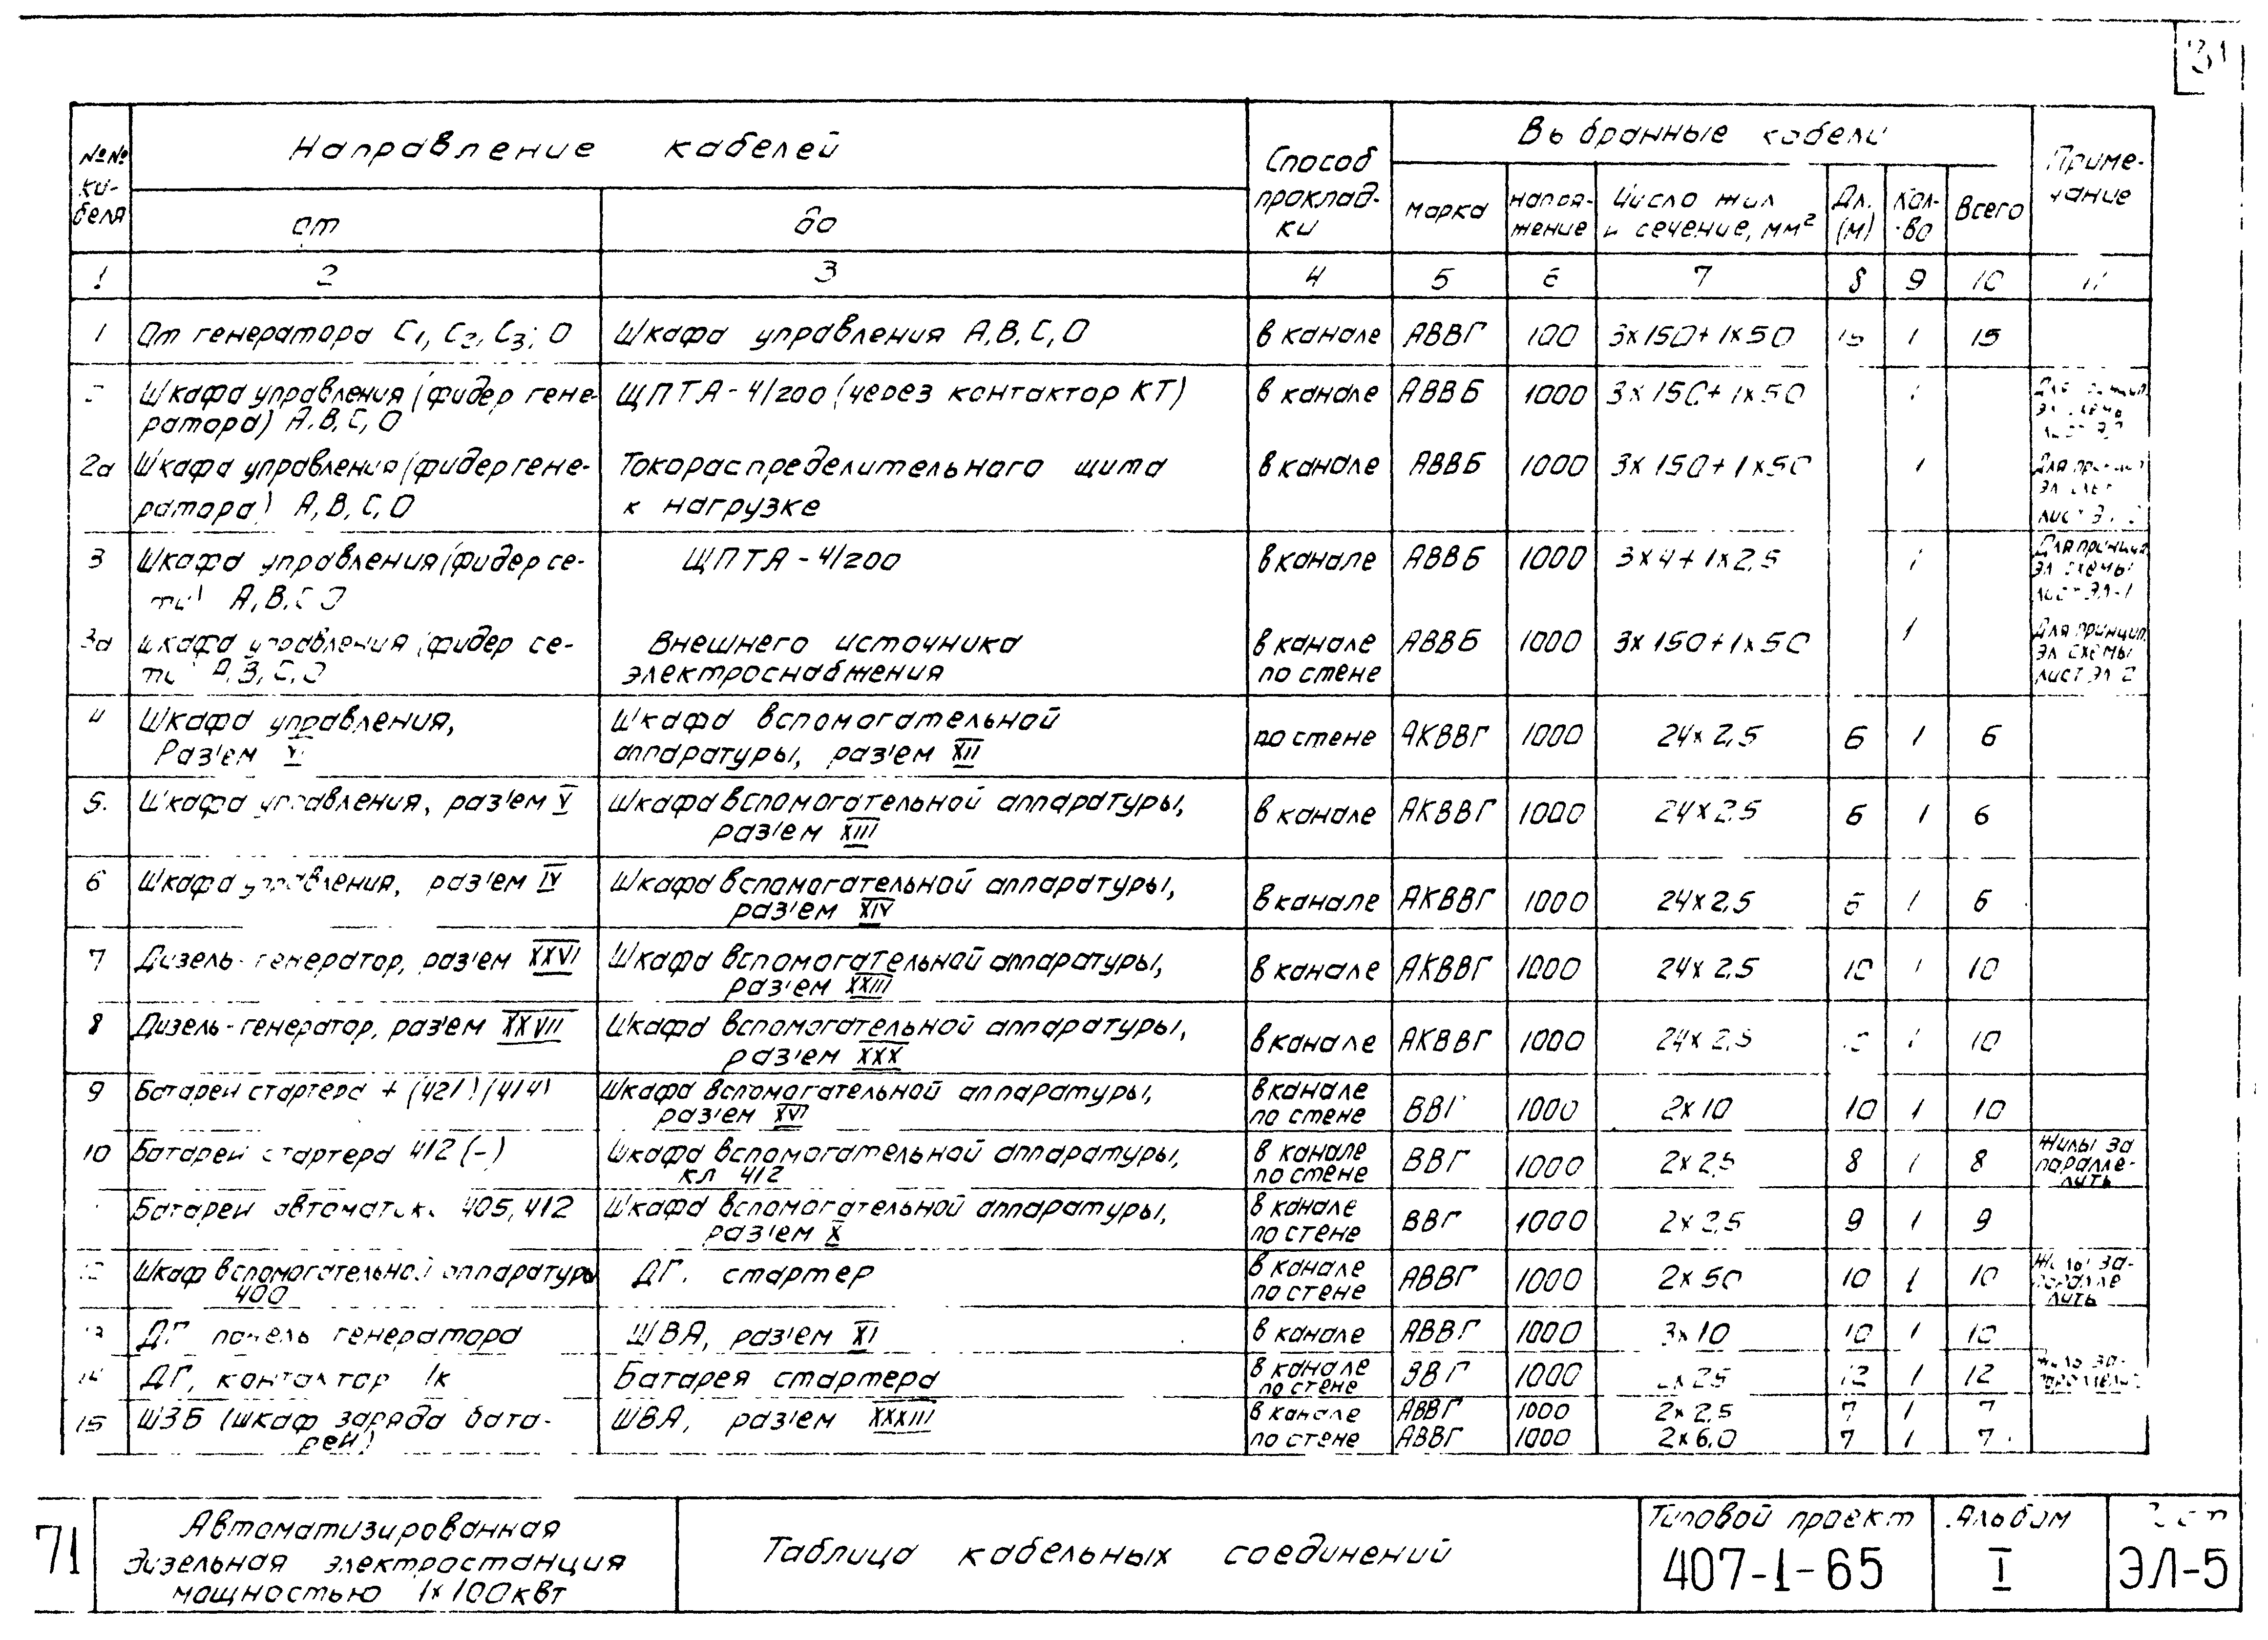 31
№№ ка-
беля
Направление кабелей
от
до
Способ
проклад-
ки
Выбранные кабели
марка
напря-
жение
Число жил
и сечение, мм²
Дл.
(м)
Кол-
-во
Всего
Приме-
чание
1 2 3 4 5 6 7 8 9 10 11
1 От генератора С1, С2, С3; О Шкафа управления А,В,С,О в канале АВВГ 100 3х150+1х50 15 1 15
Шкафа управления (фидер гене- ЩПТА-4/200 (через контактор КТ) в канале АВВБ 1000 3х150+1х50 1
ратора) А,В,С,О
2а Шкафа управления (фидер гене- Токораспределительного щита в канале АВВБ 1000 3х150+1х50 1 Для
ратора) А,В,С,О к нагрузке
лист
3 Шкафа управления (фидер се- ЩПТА-4/200 в канале АВВБ 1000 3х4+1х2,5 1 Для принцип.
ти) А,В,С,О эл схемы
лист ЭЛ-1
3а Шкафа управления (фидер се- Внешнего источника в канале АВВБ 1000 3х150+1х50 1 Для принцип.
ти) А,В,С,О электроснабжения по стене эл схемы
лист ЭЛ 2
4 Шкафа управления, Шкафа вспомогательной по стене АКВВГ 1000 24х2,5 6 1 6
Раз'ем VI аппаратуры, раз'ем XII
5. Шкафа управления, раз'ем V Шкафа вспомогательной аппаратуры, в канале АКВВГ 1000 24х2,5 6 1 6
раз'ем XIII
6 Шкафа управления, раз'ем IV Шкафа вспомогательной аппаратуры, в канале АКВВГ 1000 24х2,5 6 1 6
раз'ем XIV
7 Дизель-генератор, раз'ем XXVI Шкафа вспомогательной аппаратуры, в канале АКВВГ 1000 24х2,5 10 1 10
раз'ем XXIII
8 Дизель-генератор, раз'ем XXVII Шкафа вспомогательной аппаратуры, в канале АКВВГ 1000 24х2,5 1 10
раз'ем XXX
9 Батареи стартера + (421) (414) Шкафа вспомогательной аппаратуры, в канале ВВГ 1000 2х10 10 1 10
раз'ем XVI по стене
10 Батареи стартера 412 (-) Шкафа вспомогательной аппаратуры, в канале ВВГ 1000 2х2,5 8 1 8 Жилы за
кл 412 по стене паралле-
лить
Батареи автоматики 405, 412 Шкафа вспомогательной аппаратуры, в канале ВВГ 1000 2х2,5 9 1 9
раз'ем X по стене
12 Шкаф вспомогательной аппаратуры ДГ. стартер в канале АВВГ 1000 2х50 10 1 10 Жилы за-
400 по стене паралле
лить
13 ДГ панель генератора ШВА, раз'ем XI в канале АВВГ 1000 3х10 10 1 10
14 ДГ, контактор 1к Батарея стартера в канале ВВГ 1000 2х25 12 1 12 Жилы за-
по стене
15 ШЗБ (шкаф заряда бата- ШВА, раз'ем XXXIII в канале АВВГ 1000 2х2,5 7 1 7
реи) по стене АВВГ 1000 2х6,0 7 1 7
71
Автоматизированная
дизельная электростанция
мощностью 1х100квт
Таблица кабельных соединений
Типовой проект
407-1-65
Альбом
I
Лист
ЭЛ-5